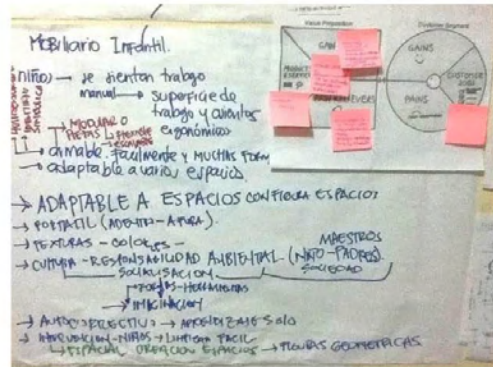 Mobiliario Infantil.
niño) → se sientan trabajo
manual → superficie de
trabajo y asientos
ergonómicos
→ MODULAR O
PIEZAS
→ armable. Facilmente y MUCHAS FORM
→ adaptable a varios espacios.
→ ADAPTABLE A ESPACIOS CONFIGURA ESPACIOS
→ PORTATIL (ADENTRO-AFUERA).
→ TEXTURAS - COLORES -
→ CULTURA - RESPONSABILIDAD AMBIENTAL (NIÑO-PADRES).
MAESTROS
SOCIEDAD
SOCIALISACION
→ FORMAS-HERRAMIENTAS
→ IMAGINACION
→ AUTOCORRECTIVO → APRENDIZAJE SOLO
→ INTERVENCION-NIÑOS → LIMPIEZA FACIL
→ ESPACIAL CREACION ESPACIOS → FIGURAS GEOMETRICAS
Value Proposition
Customer Segment
GAIN
GAINS
PAINS